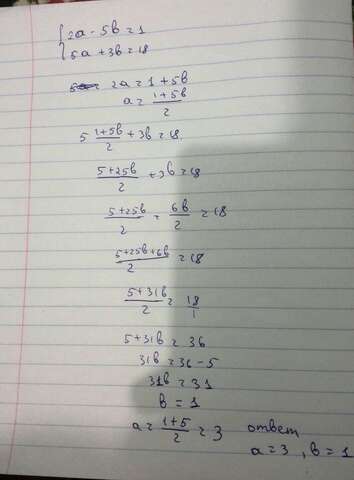 {2a - 5b = 1
5a + 3b = 18
2a = 1 + 5b
a = (1+5b)/2
5 (1+5b)/2 + 3b = 18
(5+25b)/2 + 3b = 18
(5+25b)/2 = 6b/2 = 18
(5+25b+6b)/2 = 18
(5+31b)/2 = 18/1
5+31b = 36
31b = 36-5
31b = 31
b = 1
a = (1+5)/2 = 3
ответ
a=3, b=1